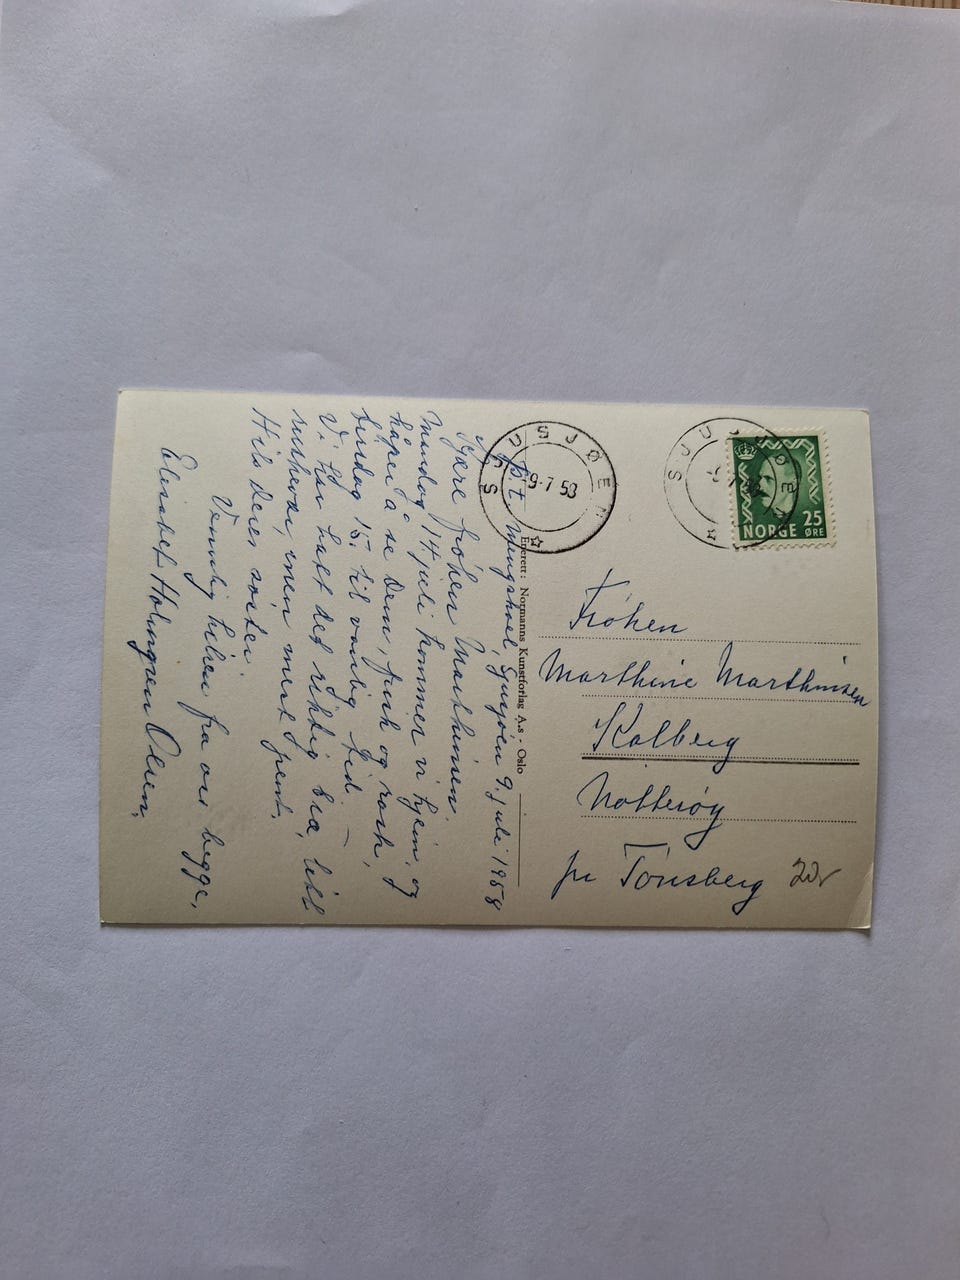 p.t. Mengshoel, Sjusjøen 9. juli 1958
Kjære frøken Marthinsen.
Mandag 14 juli kommer vi hjem, og
håper å se Dem, frisk og rask,
tirsdag 15. til vanlig tid.
Vi har hatt det riktig bra, litt
ruskevær, men mest pent.
Hils Deres søster.
Vennlig hilsen fra oss begge,
Elisabet Holmgren Olsen.
Enerett: Normanns Kunstforlag A.s - Oslo
SJUSJØEN
-9-7 58
SJUSJØEN
NORGE 25
ØRE
Frøken
Marthine Marthinsen
Kolberg
Nøtterøy
pr Tönsberg
20,-